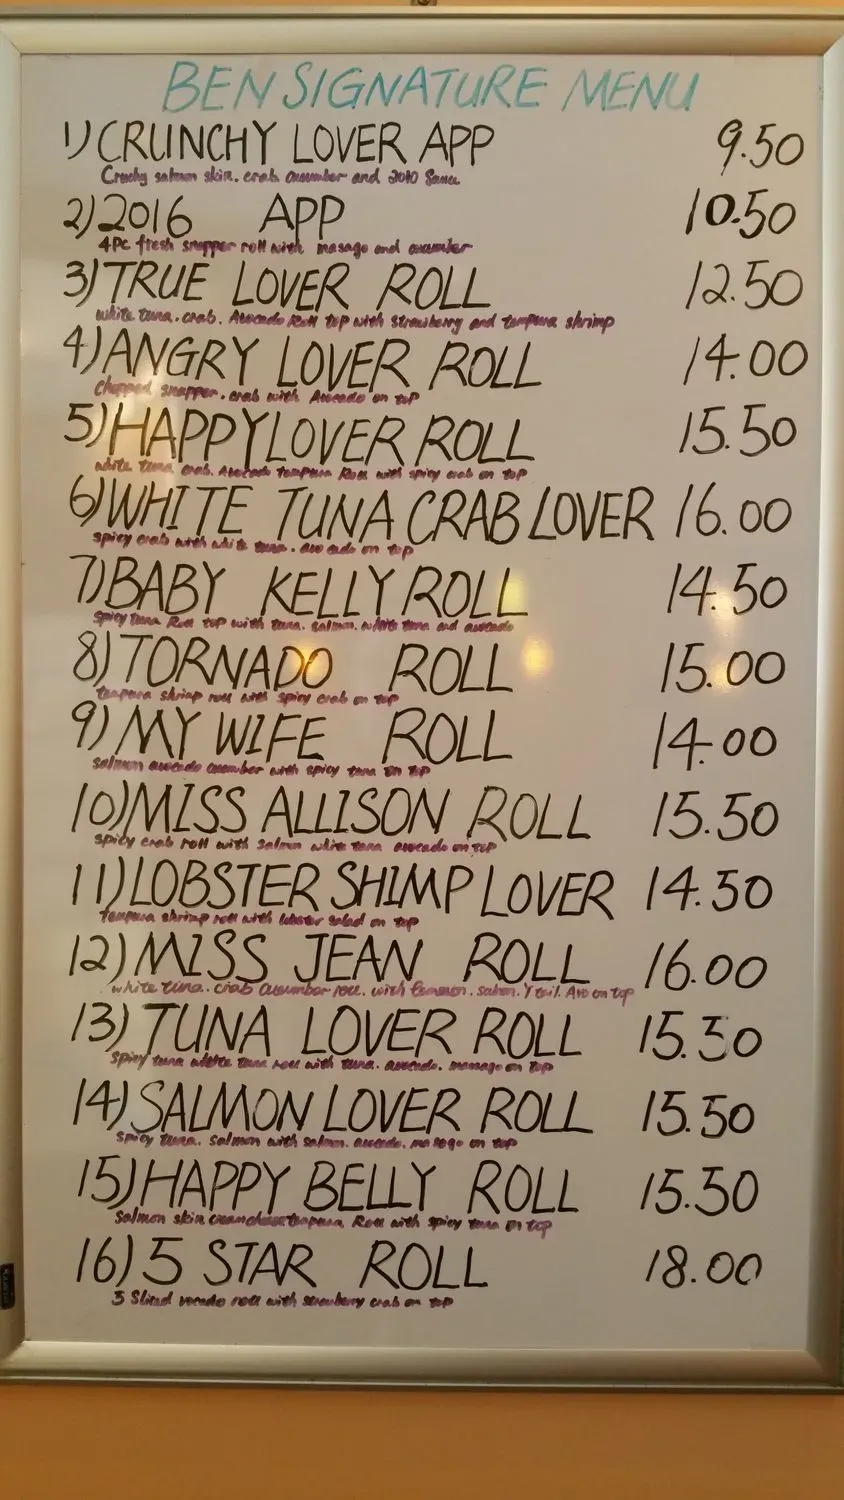 BEN SIGNATURE MENU
1) CRUNCHY LOVER APP 9.50
Cruchy salmon skin. crab cucumber and 2010 Sauce
2) 2016 APP 10.50
4PC fresh snapper roll with masago and cucumber
3) TRUE LOVER ROLL 12.50
white tuna. crab. Avocado Roll top with strawberry and tempura shrimp
4) ANGRY LOVER ROLL 14.00
Chopped snapper. crab with Avocado on top
5) HAPPY LOVER ROLL 15.50
white tuna crab. Avocado tempura Roll with spicy crab on top
6) WHITE TUNA CRAB LOVER 16.00
spicy crab with white tuna. avocado on top
7) BABY KELLY ROLL 14.50
spicy tuna Roll top with tuna. salmon. white tuna and avocado
8) TORNADO ROLL 15.00
tempura shrimp roll with spicy crab on top
9) MY WIFE ROLL 14.00
salmon avocado cucumber with spicy tuna on top
10) MISS ALLISON ROLL 15.50
spicy crab roll with salmon white tuna avocado on top
11) LOBSTER SHIMP LOVER 14.50
Tempura shrimp roll with lobster salad on top
12) MISS JEAN ROLL 16.00
white tuna. crab cucumber roll. with salmon. Y tail. Avo on top
13) TUNA LOVER ROLL 15.50
Spicy tuna white tuna roll with tuna. avocado. massago on top
14) SALMON LOVER ROLL 15.50
spicy tuna. salmon with salmon. avocado. masago on top
15) HAPPY BELLY ROLL 15.50
Salmon skin creamcheese tempura Roll with spicy tuna on top
16) 5 STAR ROLL 18.00
roll with strawberry crab on top